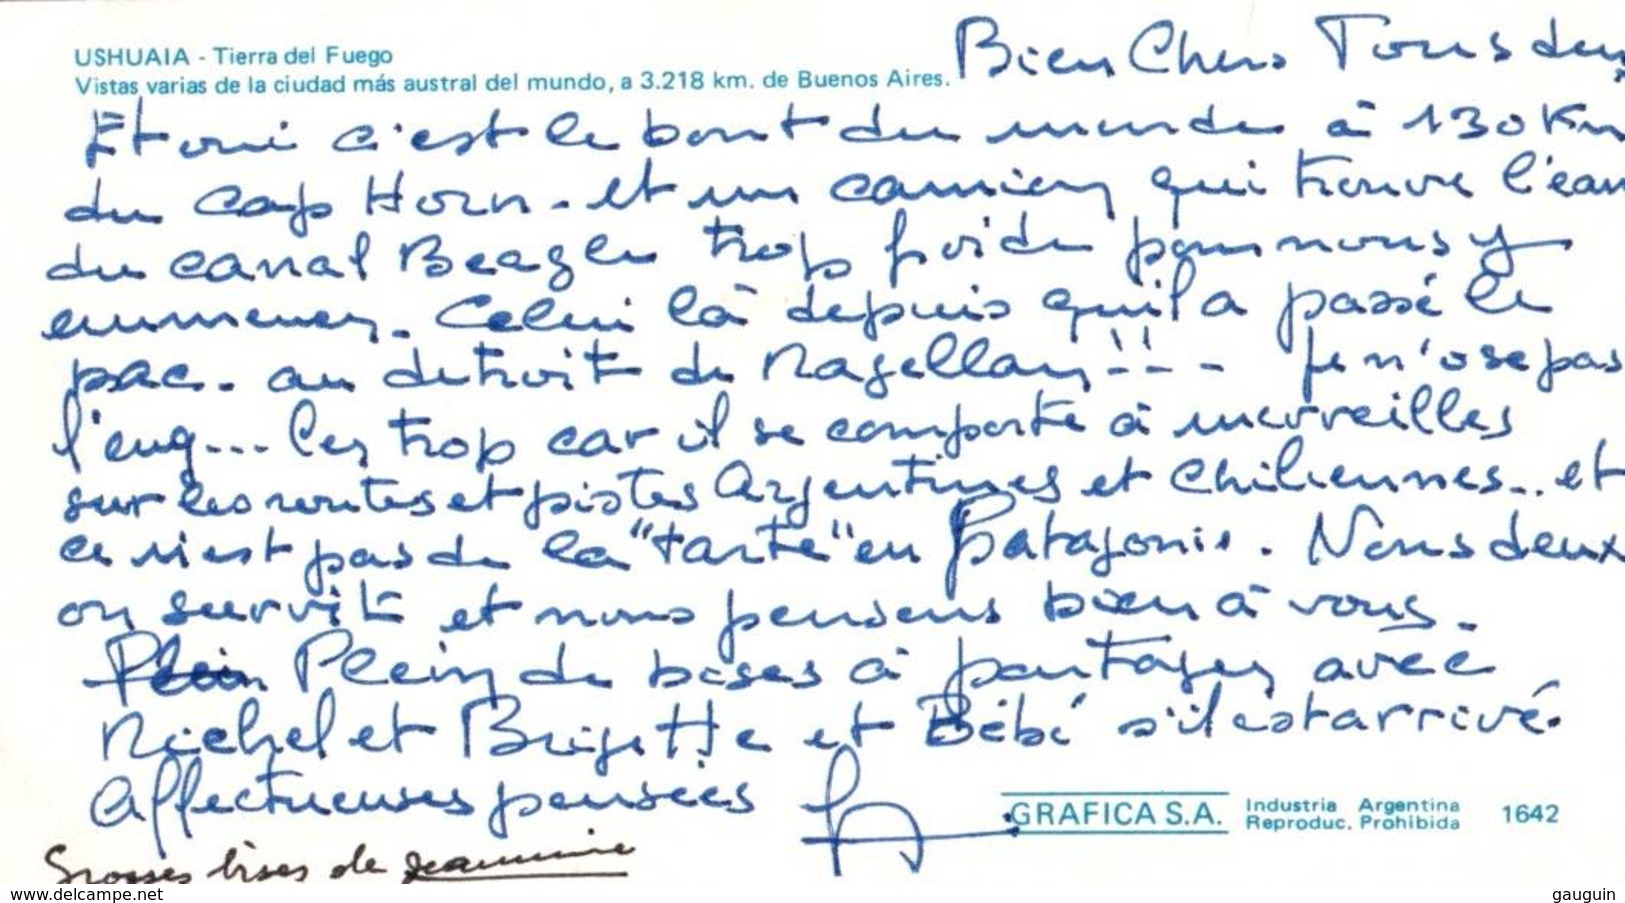 USHUAIA - Tierra del Fuego
Vistas varias de la ciudad más austral del mundo, a 3.218 km. de Buenos Aires.
Bien Chers Tous deux
Et oui c'est le bout du monde à 130 Km
du Cap Horn - et un camion qui trouve l'eau
du canal Beagle trop froide pour nous y
emmener. Celui là depuis qu'il a passé le
bac. au détroit de Magellan!!-- Je n'ose pas
l'eng... ler trop car il se comporte à merveilles
sur les routes et pistes Argentines et Chiliennes... et
ce n'est pas de la "tarte" en Patagonie. Nous deux
on survit et nous pensons bien à vous.
Plein Plein de bises à partager avec
Michel et Brigitte et Bébé s'il est arrivé.
Affectueuses pensées
Grosses bises de Jeannine
GRAFICA S.A. Industria Argentina
Reproduc. Prohibida 1642
www.delcampe.net gauguin